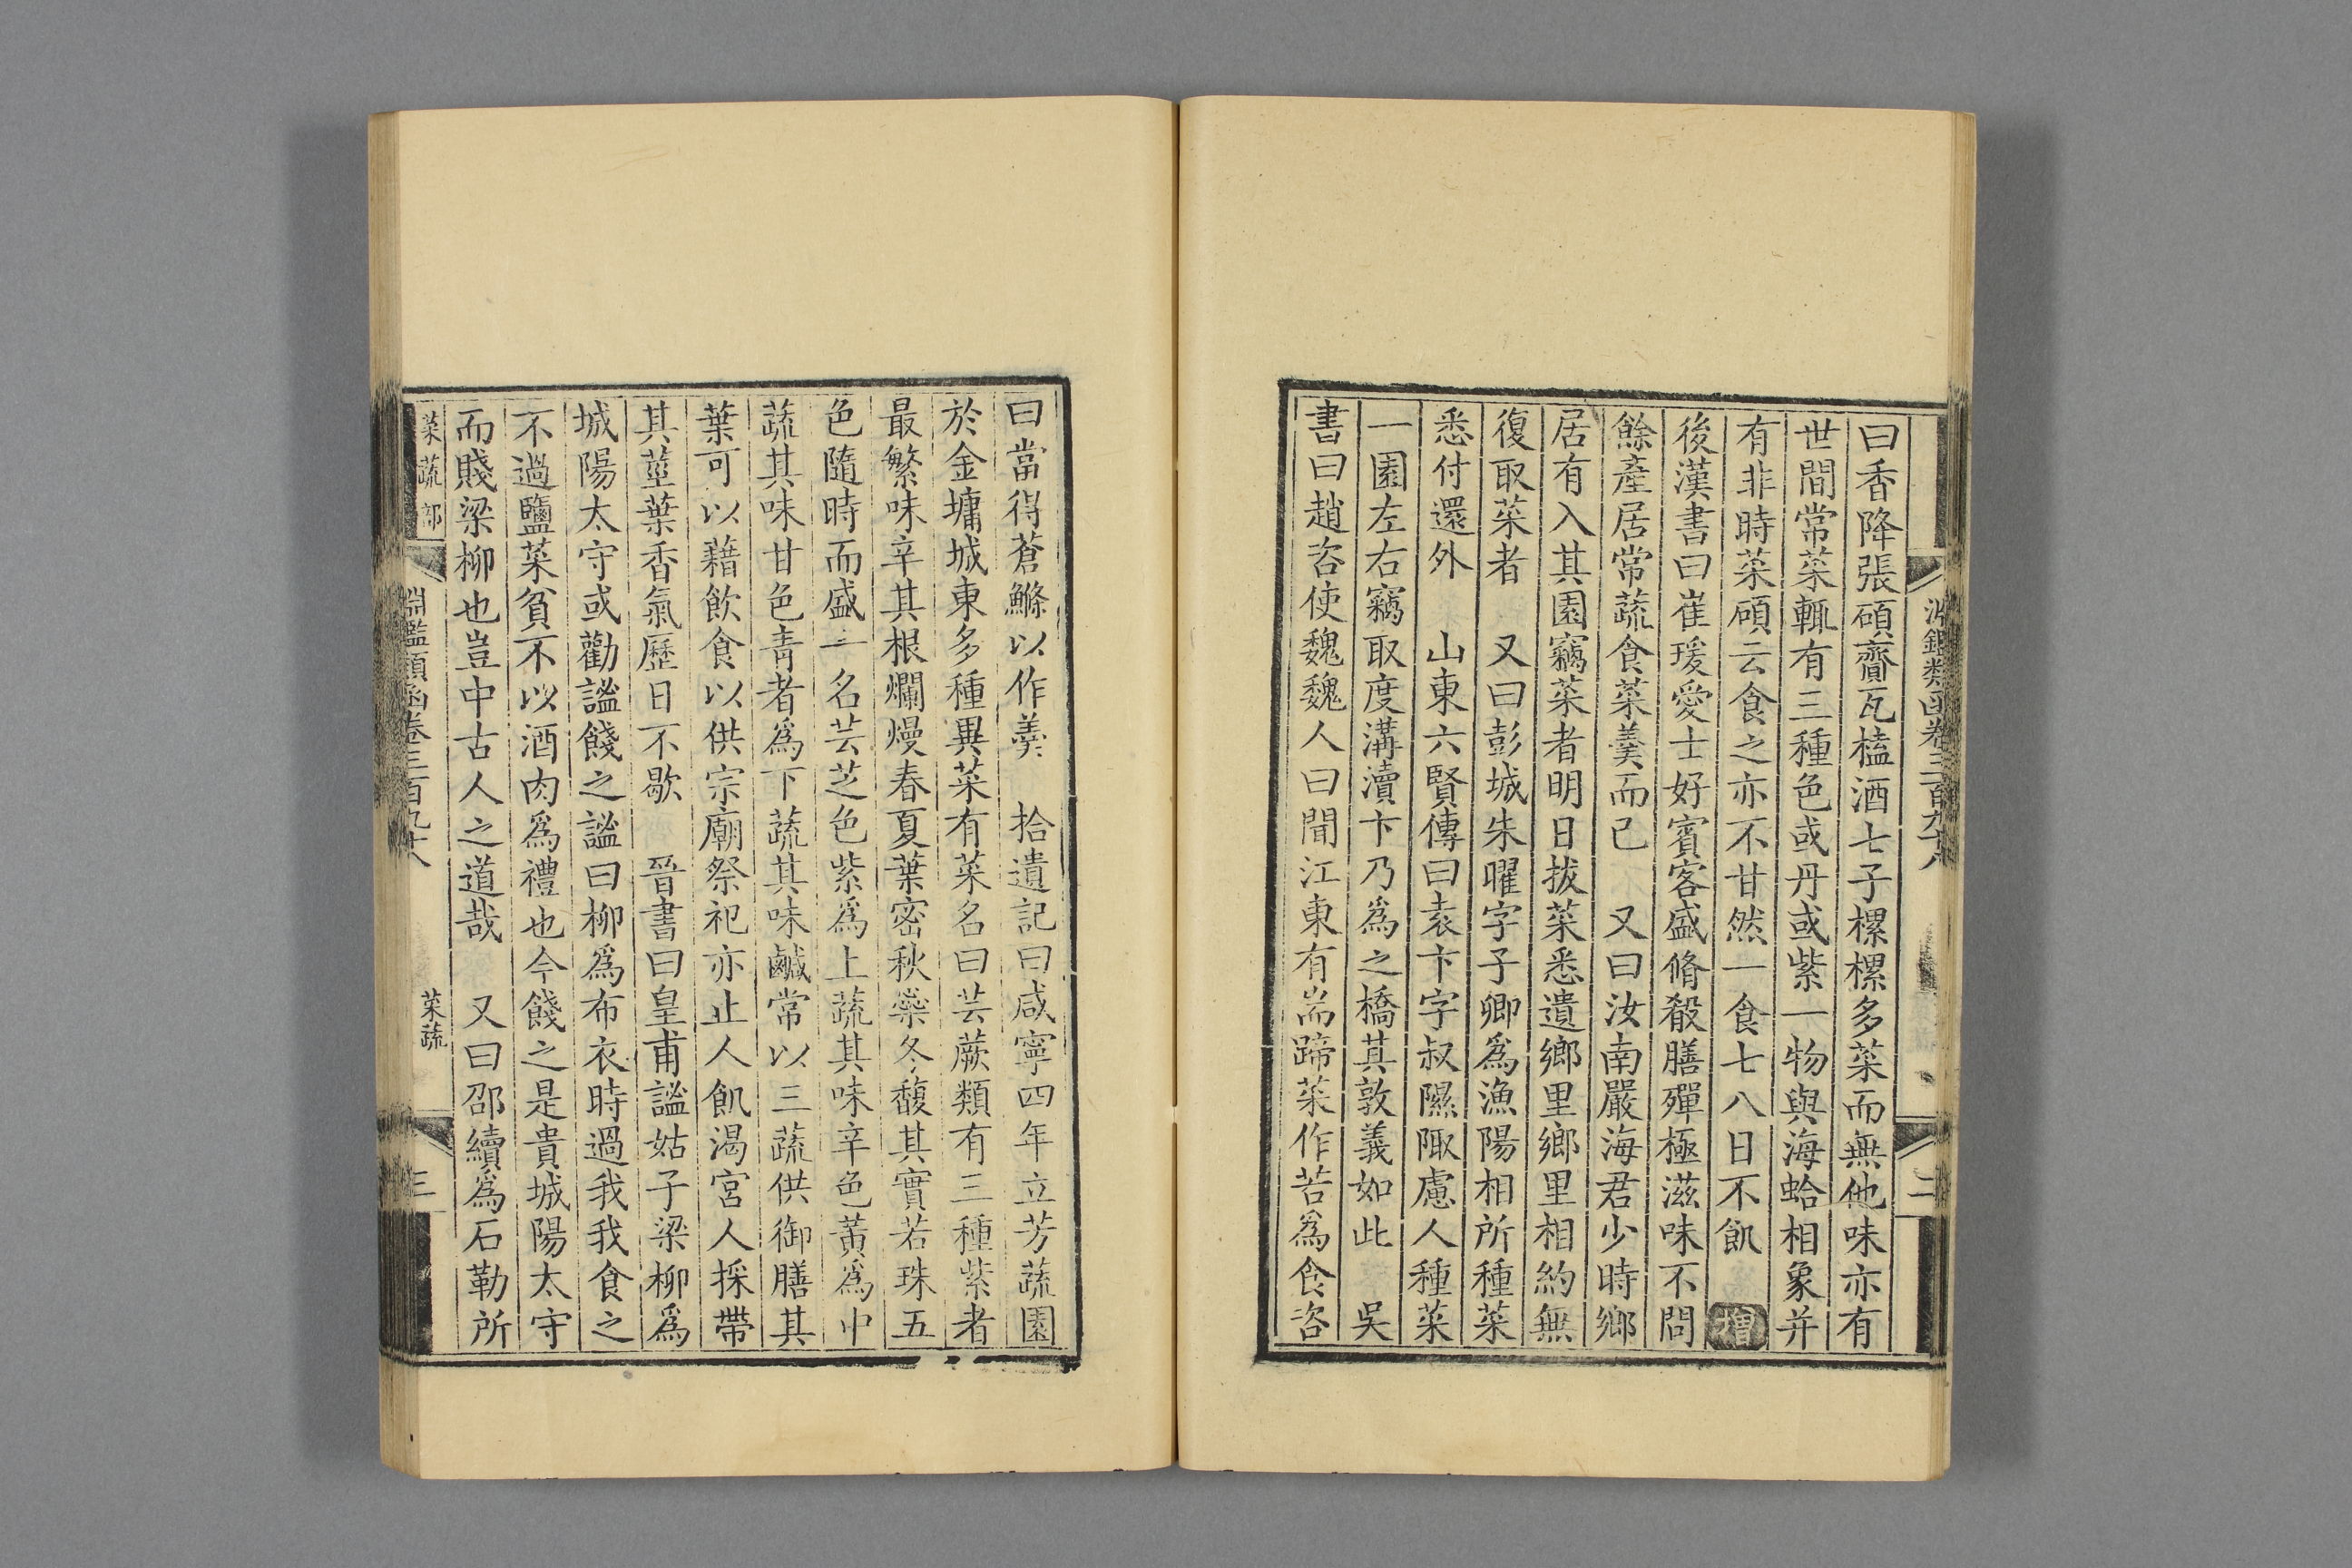 淵鑑類函卷三百九十八
二
曰香降張碩齎瓦榼酒七子樏樏多菜而無他味亦有
世間常菜輒有三種色或丹或紫一物與海蛤相象并
有非時菜碩云食之亦不甘然一食七八日不飢 增
後漢書曰崔瑗愛士好賓客盛脩殽膳殫極滋味不問
餘產居常蔬食菜羹而已 又曰汝南嚴海君少時鄉
居有入其園竊菜者明日拔菜悉遺鄉里鄉里相約無
復取菜者 又曰彭城朱曜字子卿爲漁陽相所種菜
悉付還外 山東六賢傳曰袁卞字叔隰陬慮人種菜
一園左右竊取度溝瀆卞乃爲之橋其敦義如此 吳
書曰趙咨使魏魏人曰聞江東有耑蹄菜作苦爲食咨
曰當得蒼鰷以作羹 拾遺記曰咸寧四年立芳蔬園
於金墉城東多種異菜有菜名曰芸蕨類有三種紫者
最繁味辛其根爛熳春夏葉密秋蘂冬馥其實若珠五
色隨時而盛一名芸芝色紫爲上蔬其味辛色黃爲中
蔬其味甘色靑者爲下蔬其味鹹常以三蔬供御膳其
葉可以藉飲食以供宗廟祭祀亦止人飢渴宮人採帶
其莖葉香氣歷日不歇 晉書曰皇甫謐姑子梁柳爲
城陽太守或勸謐餞之謐曰柳爲布衣時過我我食之
不過鹽菜貧不以酒肉爲禮也今餞之是貴城陽太守
而賤梁柳也豈中古人之道哉 又曰邵續爲石勒所
菜蔬部
淵鑑類函卷三百九十八
菜蔬
三